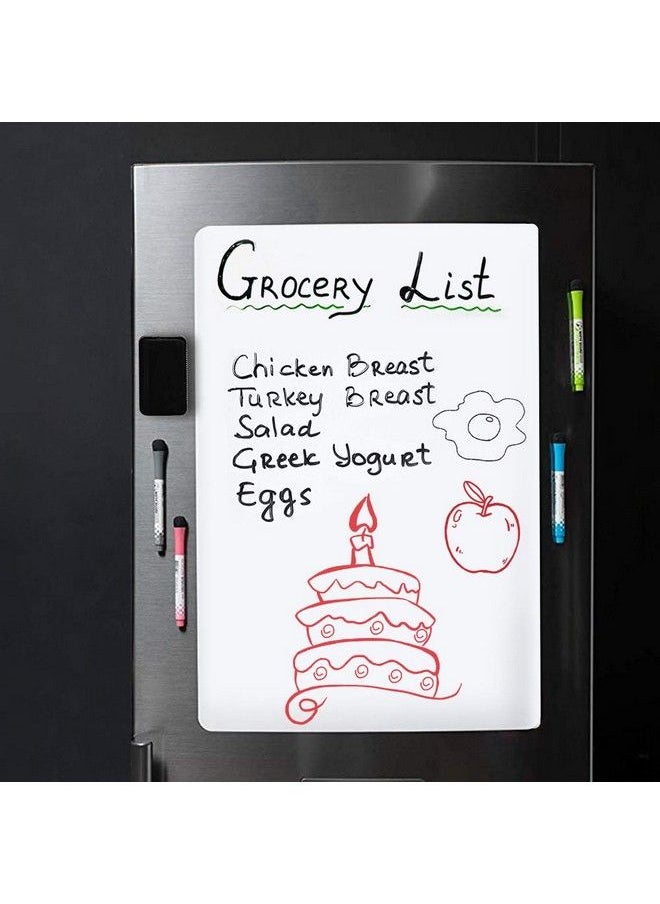 Grocery List
Chicken Breast
Turkey Breast
Salad
Greek Yogurt
Eggs